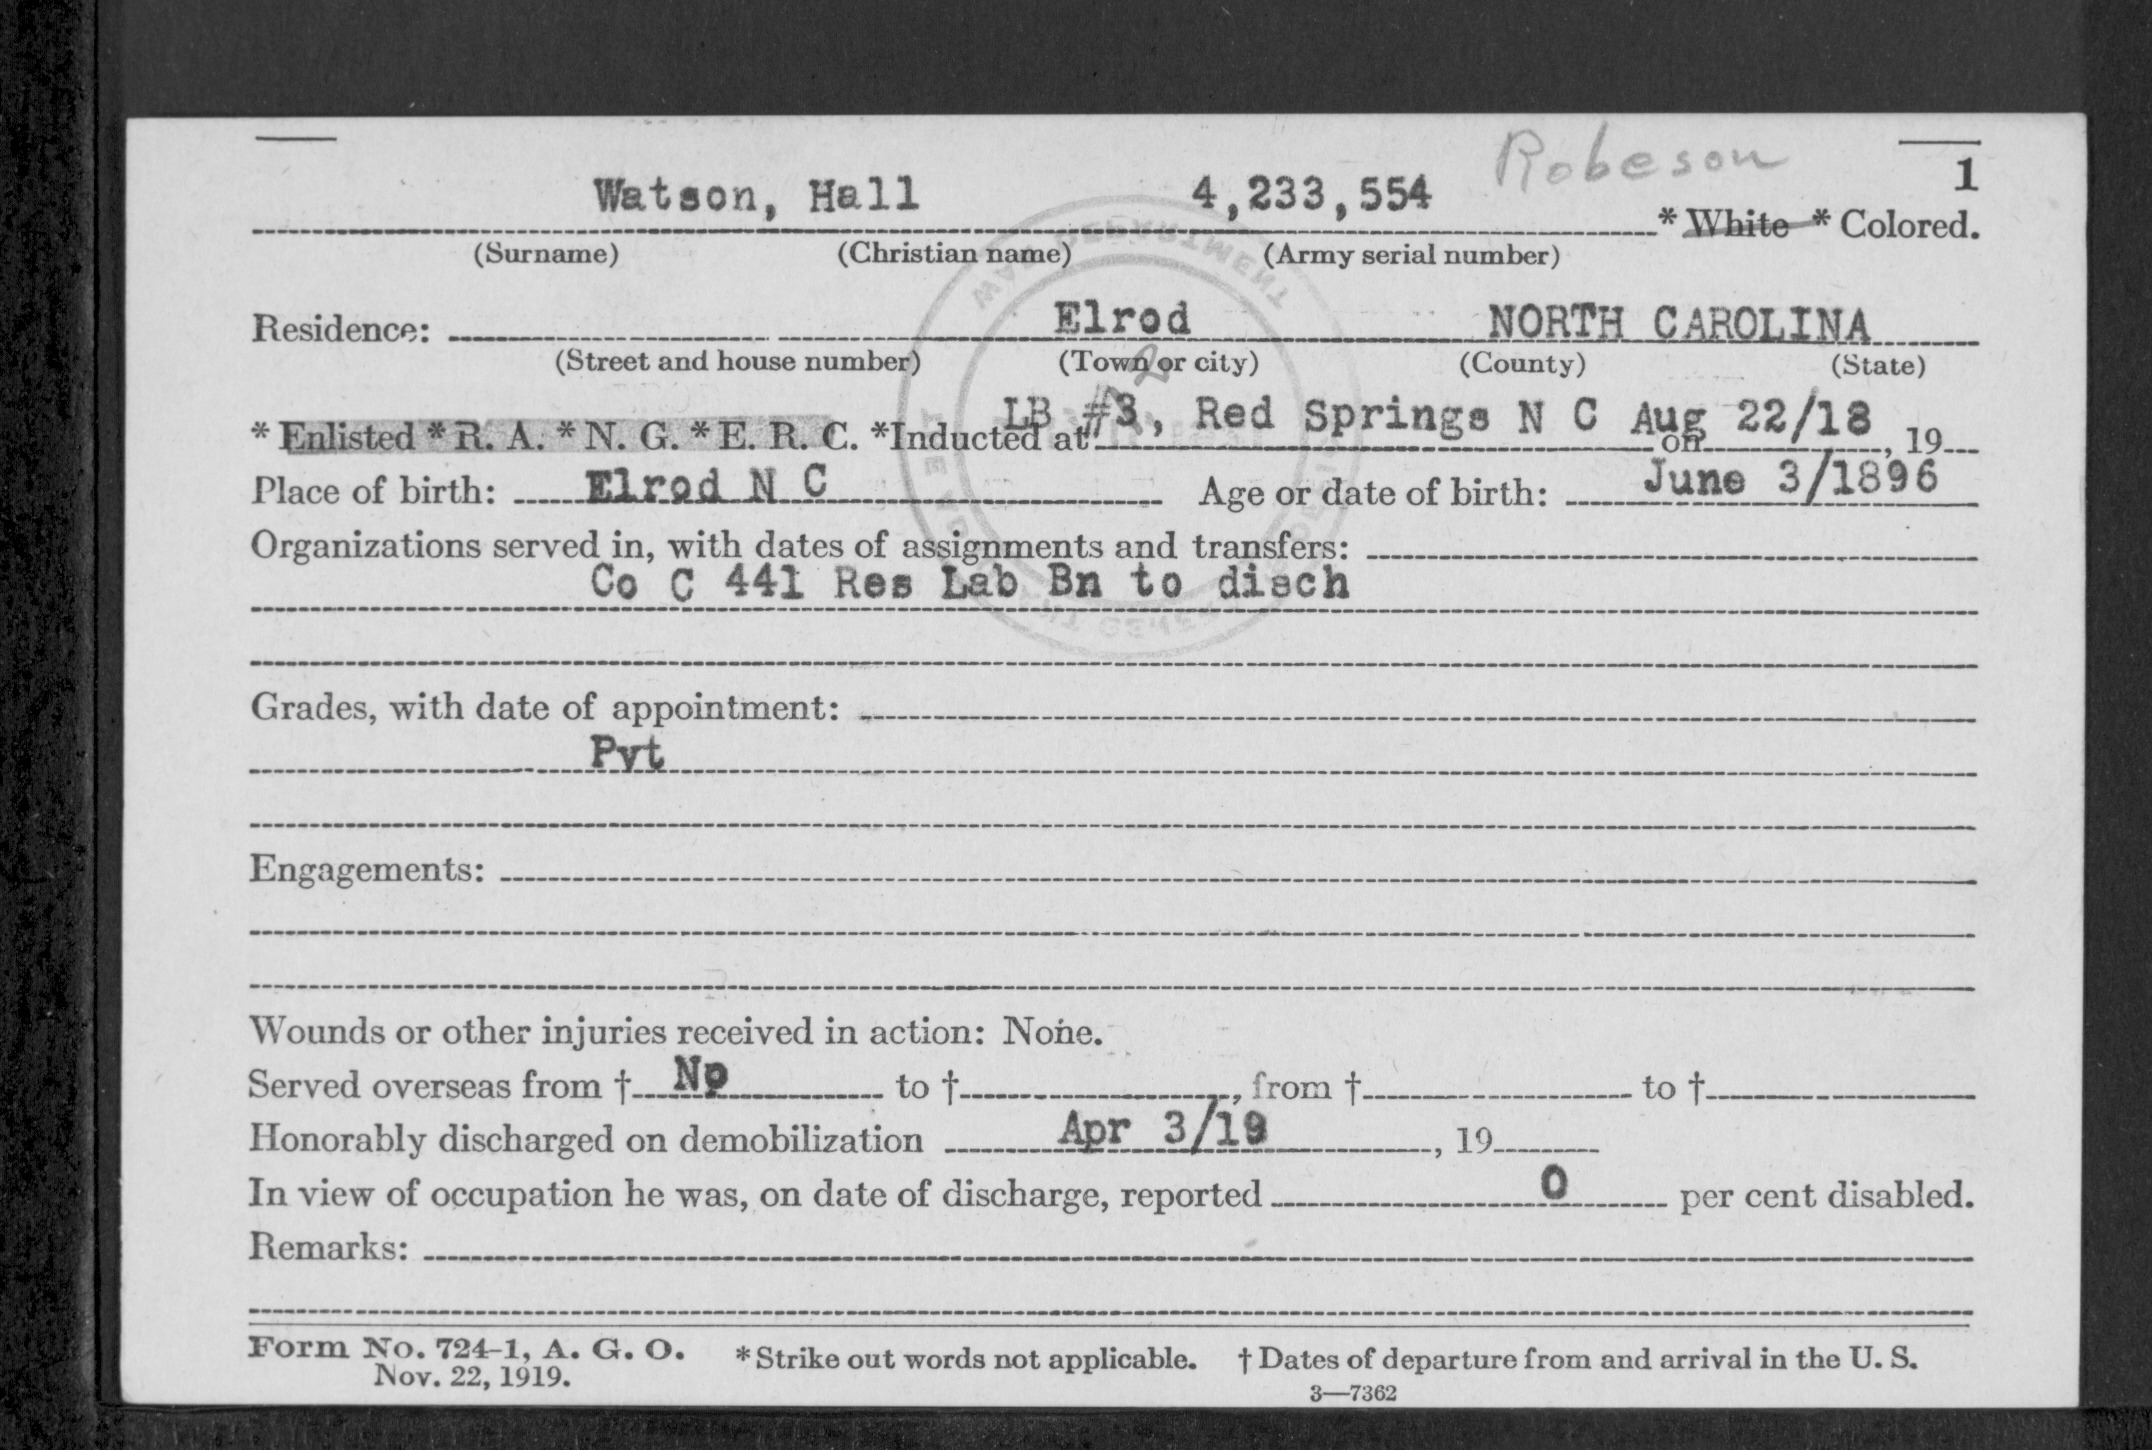 Robeson
1
Watson, Hall 4,233,554 * White * Colored.
(Surname) (Christian name) (Army serial number)
Residence: Elrod NORTH CAROLINA
(Street and house number) (Town or city) (County) (State)
* Enlisted * R. A. * N. G. * E. R. C. *Inducted at LB #3, Red Springs N C on Aug 22/18, 19
Place of birth: Elrod N C Age or date of birth: June 3/1896
Organizations served in, with dates of assignments and transfers:
Co C 441 Res Lab Bn to disch
Grades, with date of appointment:
Pvt
Engagements:
Wounds or other injuries received in action: None.
Served overseas from † No to †, from † to †
Honorably discharged on demobilization Apr 3/19, 19
In view of occupation he was, on date of discharge, reported 0 per cent disabled.
Remarks:
Form No. 724-1, A. G. O. * Strike out words not applicable. † Dates of departure from and arrival in the U. S.
Nov. 22, 1919.
3—7362